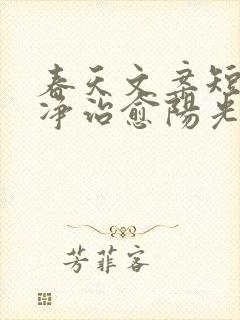 春天文案短
净治愈陽光
芳菲客